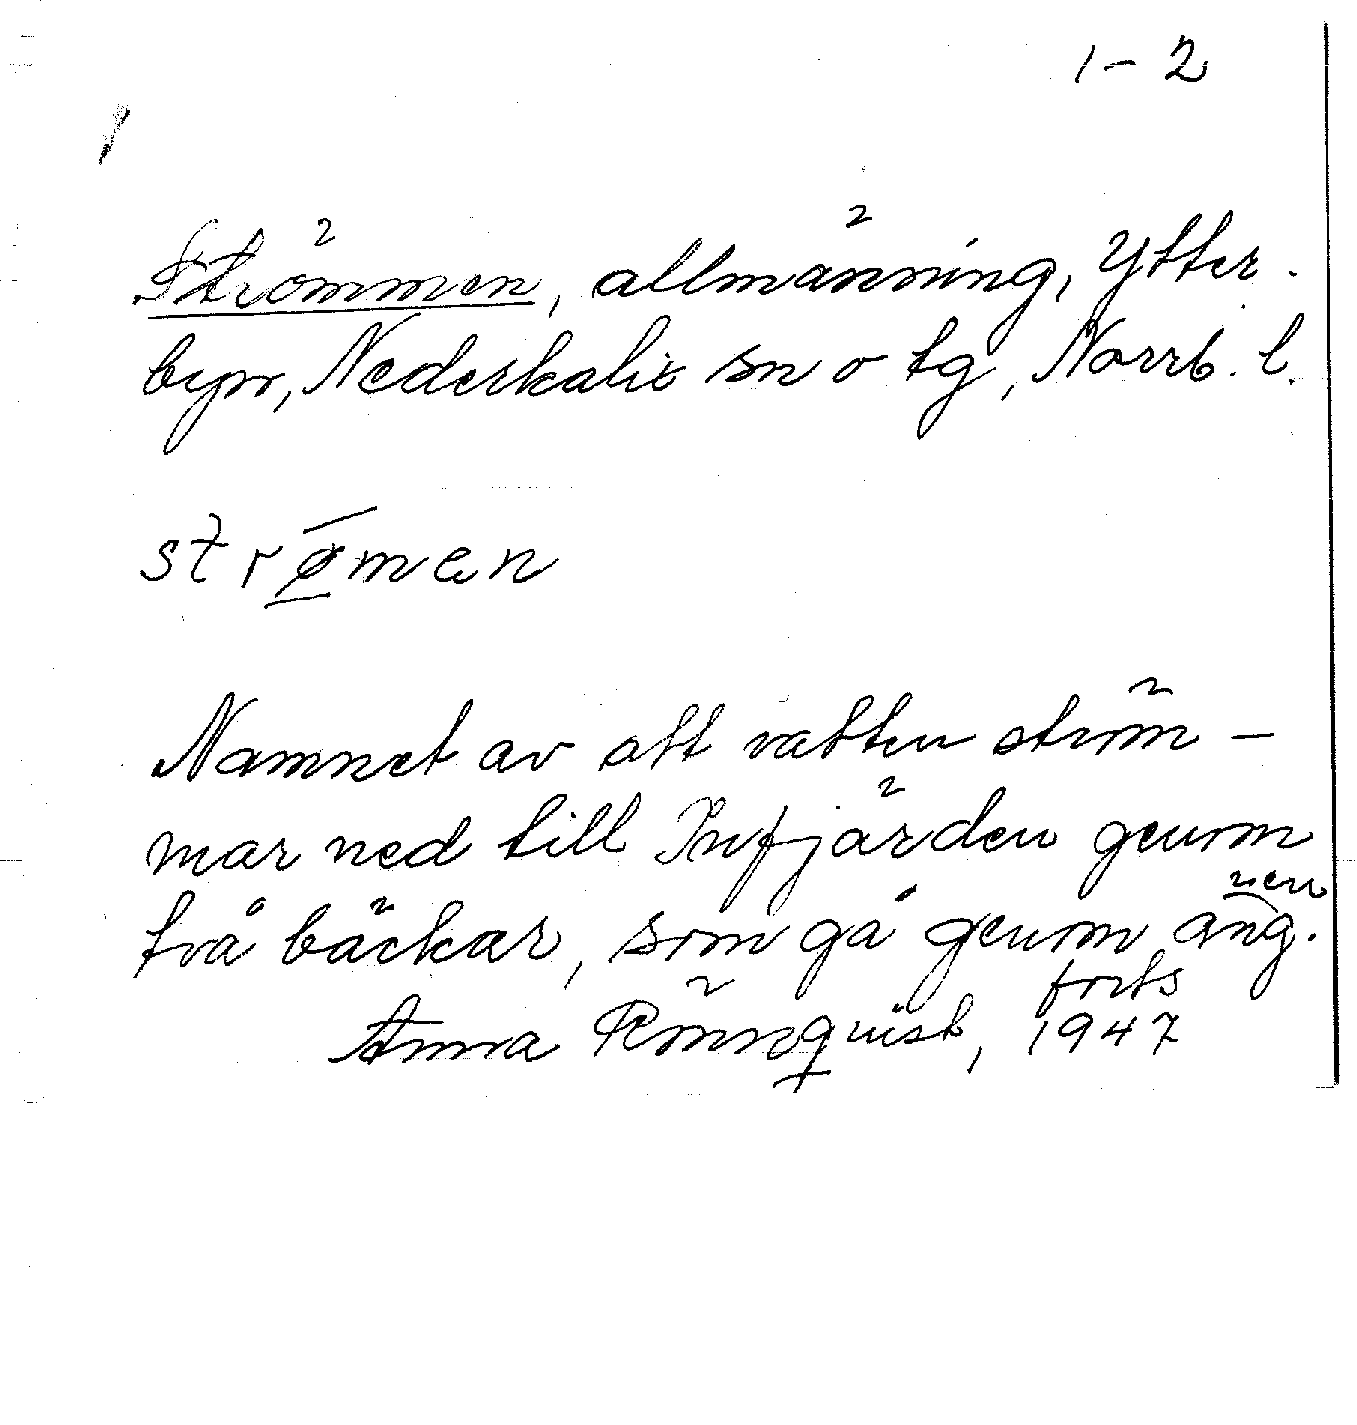 1-2
Strömmen, allmänning, Ytter-
byn, Nederkalix sn o tg, Norrb. l.
strø̄men
Namnet av att vatten ström-
mar ned till Infjärden genom
två bäckar, som gå genom äng.
nen
forts
Anna Rönnqvist, 1947